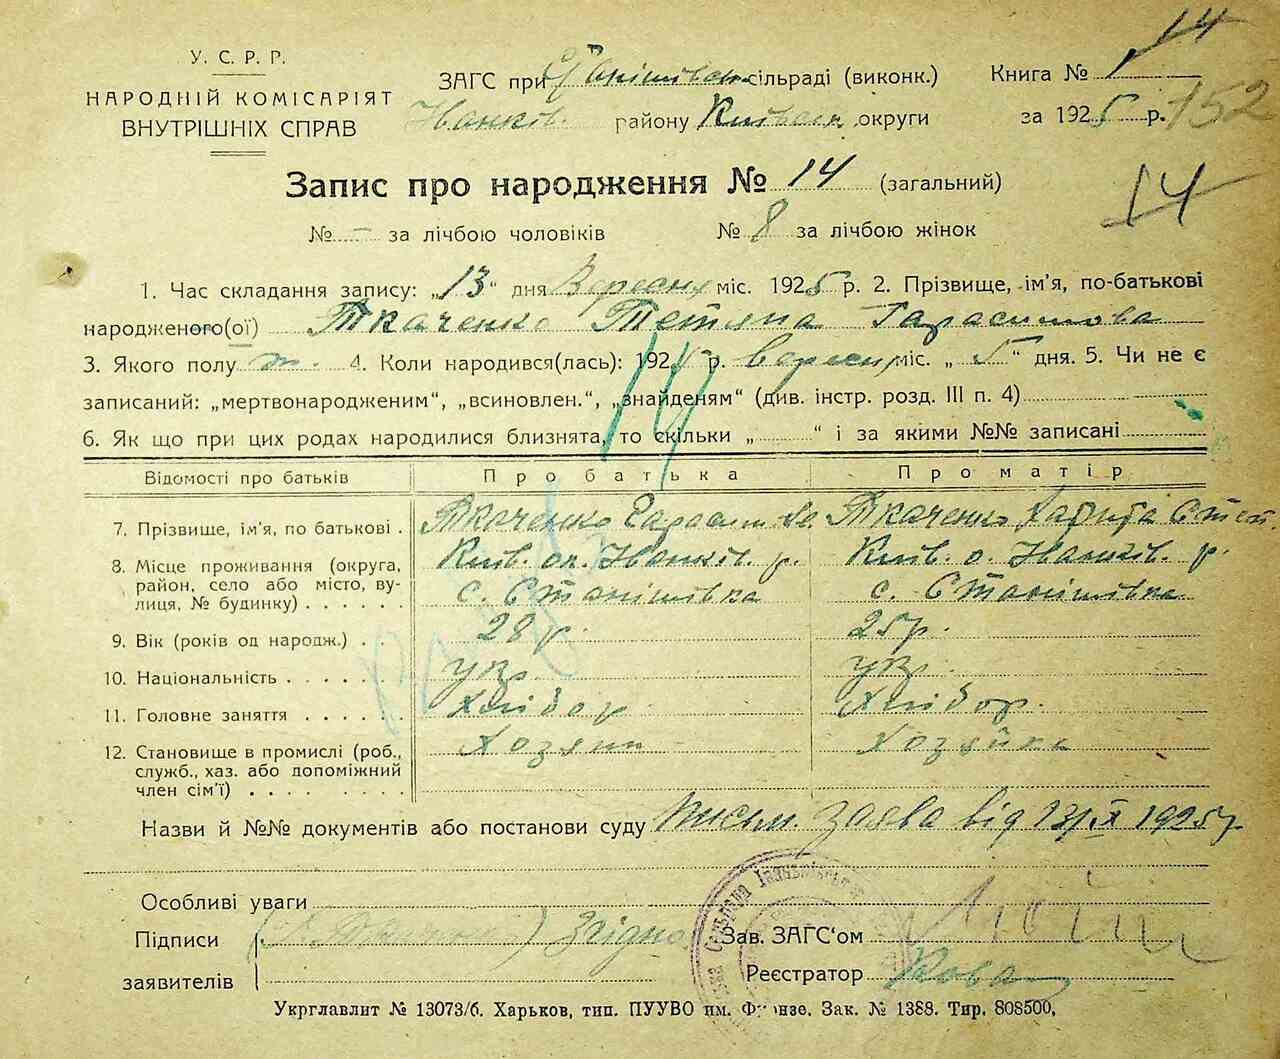 14
У. С. Р. Р.
НАРОДНІЙ КОМІСАРІЯТ
ВНУТРІШНІХ СПРАВ
ЗАГС при Станішівськ. сільраді (виконк.)
Іванків. району Київськ. округи
Книга № 1
за 1925 р. 152
Запис про народження № 14 (загальний)
14
№ - за лічбою чоловіків № 8 за лічбою жінок
1. Час складання запису: „13“ дня Вересня міс. 1925 р. 2. Прізвище, ім'я, по-батькові
народженого(ої) Ткаченко Тетяна Гарасимова
3. Якого полу ж. 4. Коли народився(лась): 1925 р. Вересня міс. „5“ дня. 5. Чи не є
записаний: „мертвонародженим“, „всиновлен.“, „знайденям“ (див. інстр. розд. III п. 4)
14
6. Як що при цих родах народилися близнята, то скільки „ “ і за якими №№ записані
Відомості про батьків Про батька Про матір
7. Прізвище, ім'я, по батькові . Ткаченко Гарасим Ткаченко Харита Степ.
8. Місце проживання (округа, Київ. ок. Іванків. р. Київ. о. Іванків. р.
район, село або місто, ву- с. Станішівка с. Станішівка
лиця, № будинку) . . . . . .
9. Вік (років од народж.) . . 28 р. 25 р.
10. Національність . . . . . . укр. укр.
11. Головне заняття . . . . . . Хлібор. Хлібор.
12. Становище в промислі (роб., Хозяин Хозяйка
служб., хаз. або допоміжний
член сім'ї) . . . . . . .
Назви й №№ документів або постанови суду Письм. заява від 13/IX 1925 р.
Особливі уваги
Підписи (Ткаченко) Згідно Зав. ЗАГС'ом
заявителів Реєстратор
Укрглавлит № 13073/б. Харьков, тип. ПУУВО им. Фрунзе. Зак. № 1388. Тир. 808500.